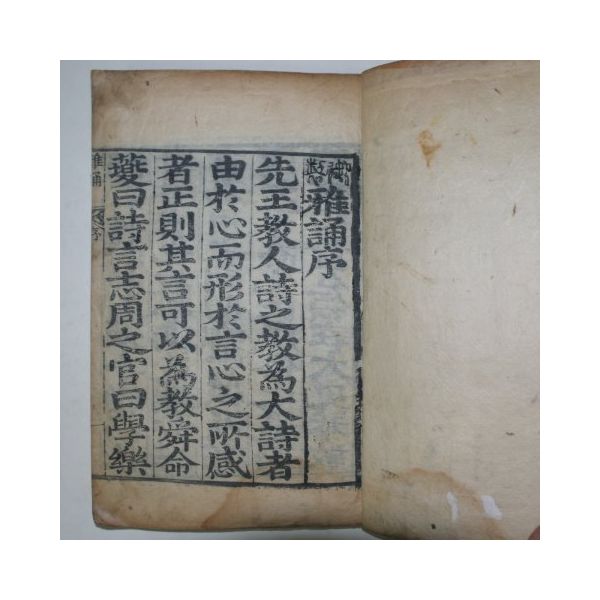 御製
雅誦序
先王教人詩之教為大詩者
由於心而形於言心之所感
者正則其言可以為教舜命
夔曰詩言志周之官曰學樂
雅誦
序